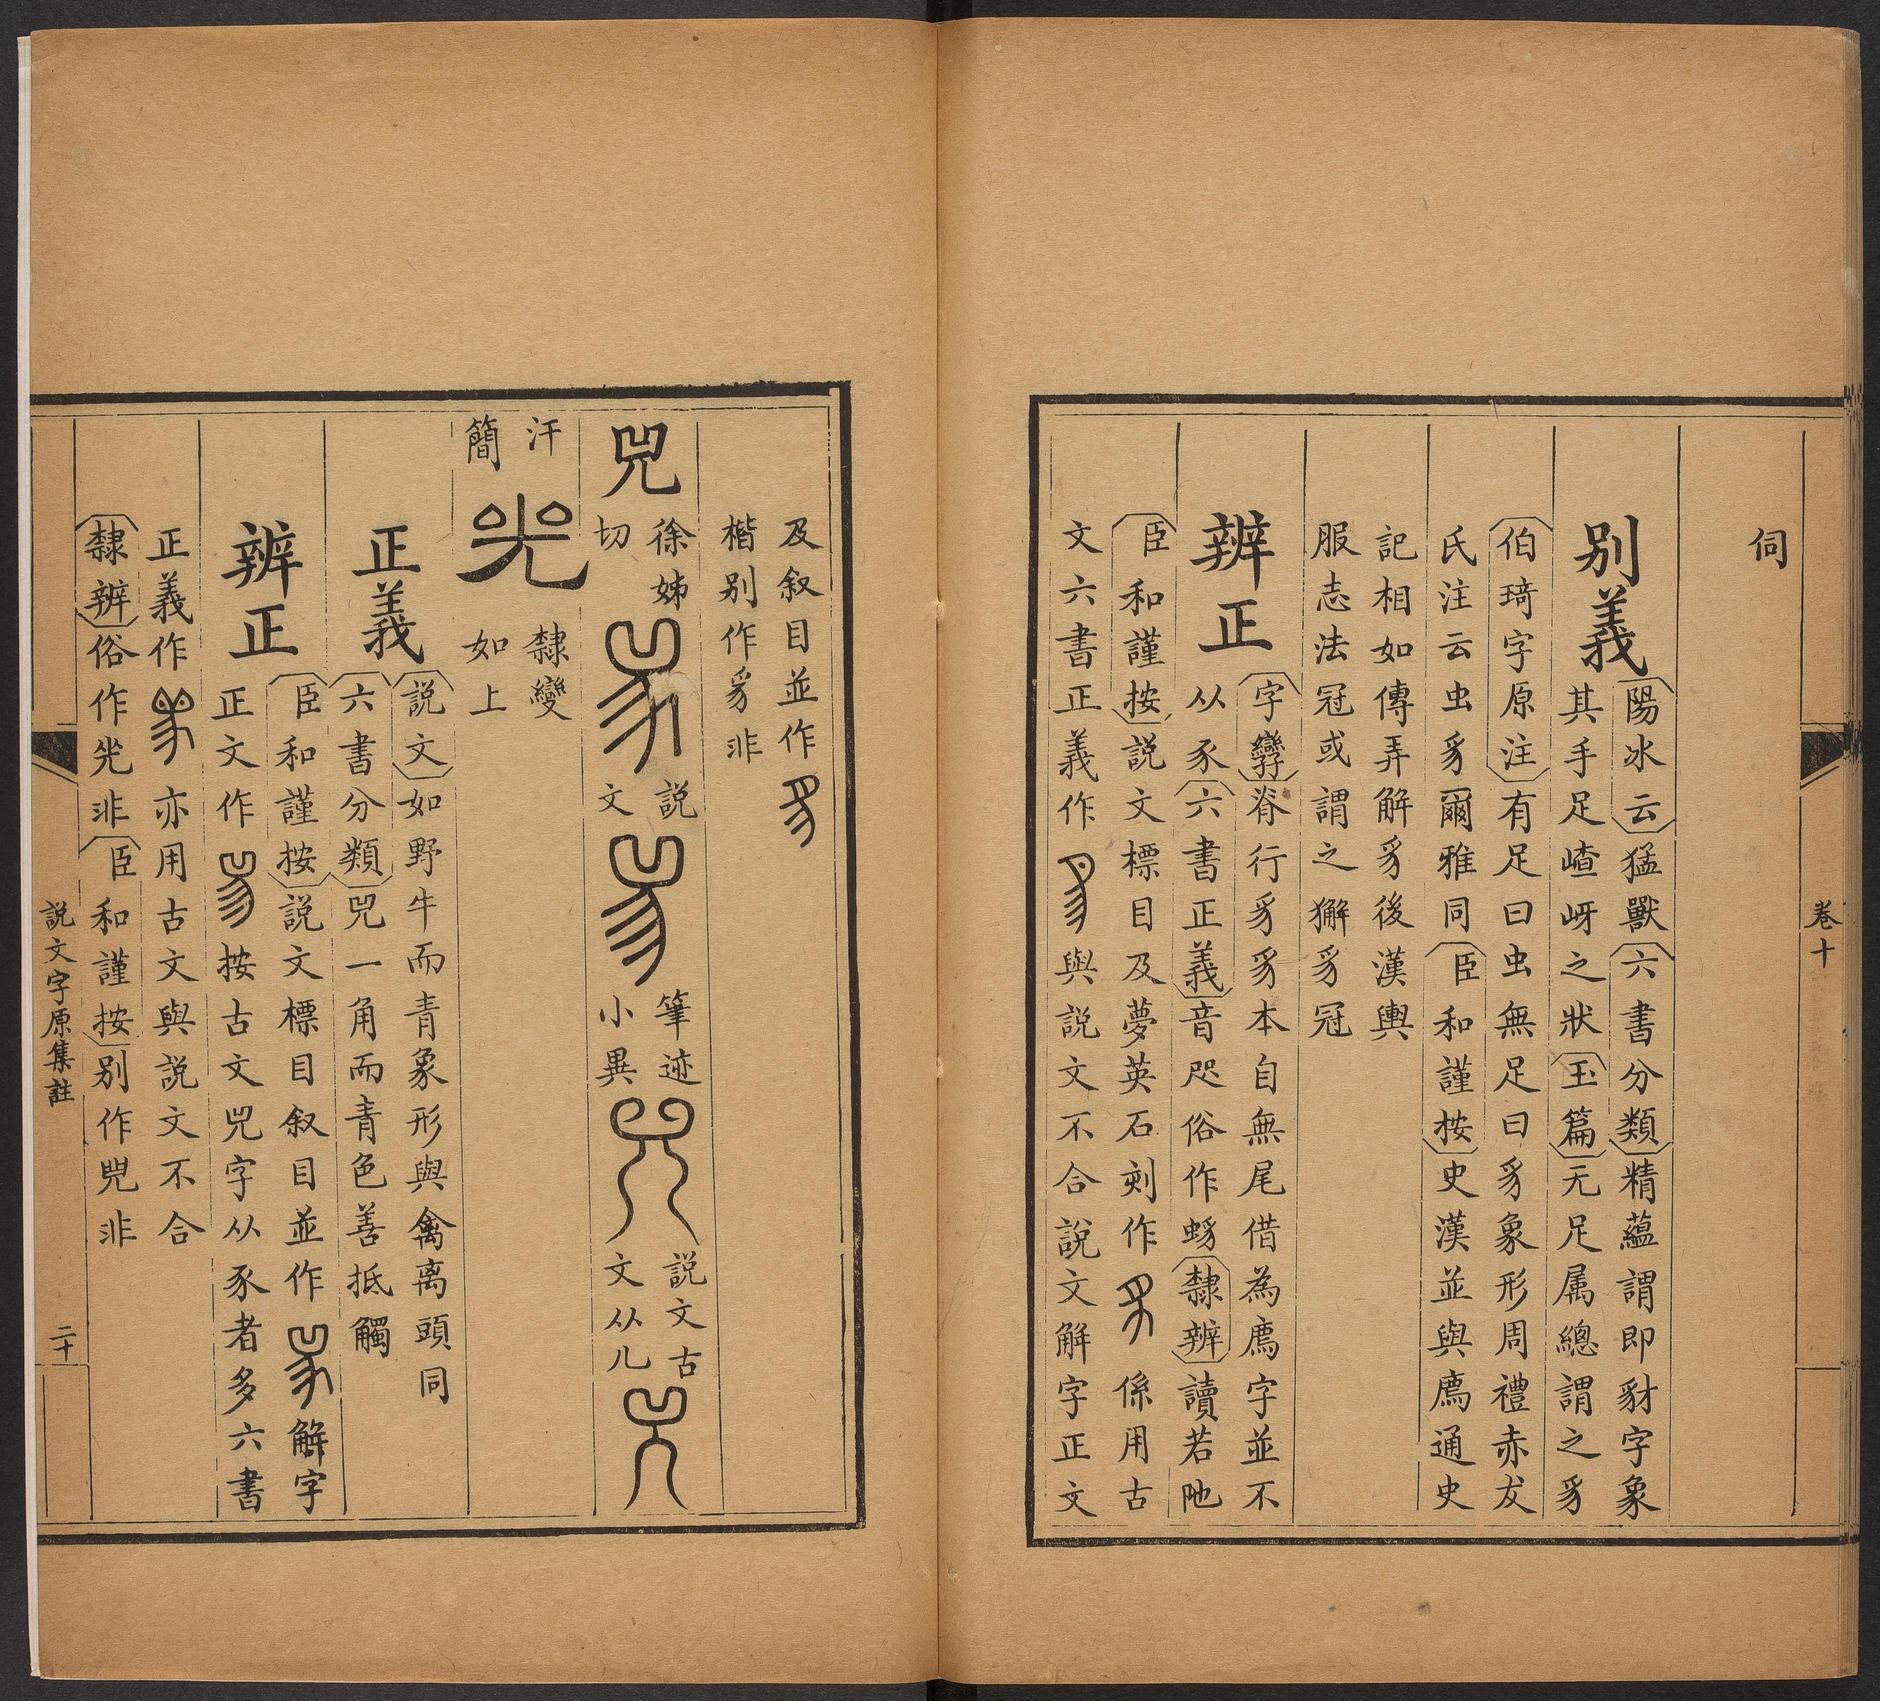 卷十
伺
別義
陽冰云猛獸六書分類精蘊謂即豺字象
其手足嵖岈之狀玉篇无足属總謂之豸
伯琦字原注有足曰虫無足曰豸象形周禮赤犮
氏注云虫豸爾雅同臣和謹按史漢並與廌通史
記相如傳弄解豸後漢輿
服志法冠或謂之獬豸冠
辨正
字孿脊行豸豸本自無尾借為廌字並不
从豕六書正義音咫俗作𧋎隸辨讀若阤
臣和謹按説文標目及夢英石刻作係用古
文六書正義作與説文不合説文解字正文
及叙目並作
楷别作豸非
兕
徐姊
切
説
文
筆迹
小異
説文古
文从儿
汗
簡
隸變
如上
正義
説文如野牛而青象形與禽离頭同
六書分類兕一角而青色善抵觸
辨正
臣和謹按説文標目叙目並作解字
正文作按古文兕字从豕者多六書
正義作亦用古文與説文不合
隸辨俗作光非臣和謹按别作兕非
説文字原集註
二十